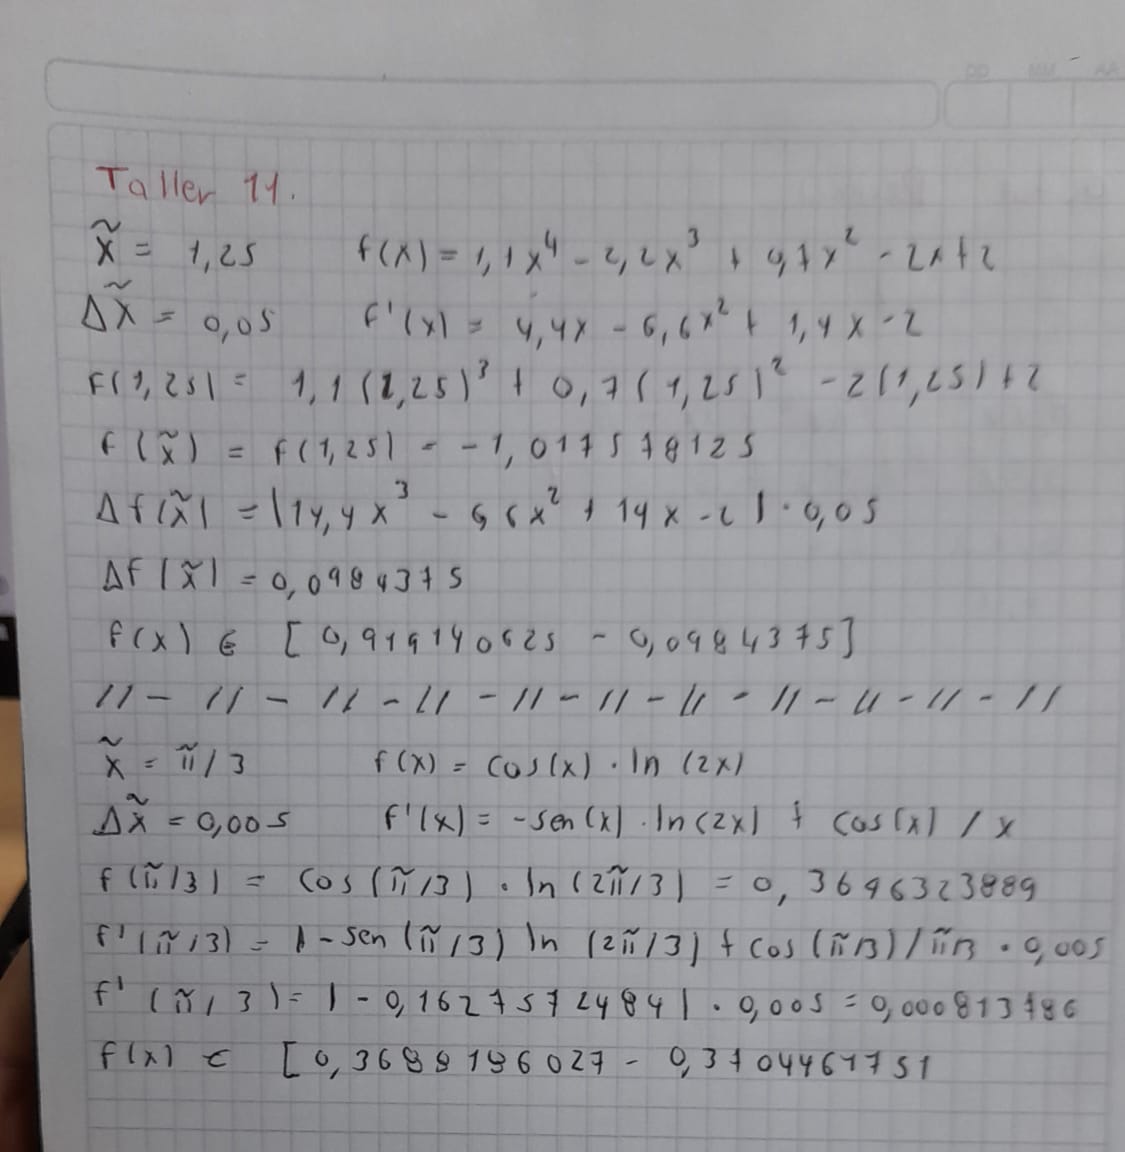 DD MM AA
Taller 11.
x̃ = 1,25 f(x) = 1,1x⁴ - 2,2x³ + 0,7x² - 2x+2
Δx̃ = 0,05 f'(x) = 4,4x - 6,6x² + 1,4x - 2
f(1,25) = 1,1(1,25)³ + 0,7(1,25)² - 2(1,25)+2
f(x̃) = f(1,25) = -1,017578125
Δf(x̃) = |14,4x³ - 6,6x² + 14x - 2|·0,05
Δf(x̃) = 0,0984375
f(x) ∈ [0,919140625 - 0,0984375]
// - // - // - // - // - // - // - // - // - // - //
x̃ = π/3 f(x) = cos(x) · ln(2x)
Δx̃ = 0,005 f'(x) = -sen(x) · ln(2x) + cos(x) / x
f(π/3) = cos(π/3) · ln(2π/3) = 0,3696323889
f'(π/3) = |-sen(π/3) ln(2π/3) + cos(π/3)/π/3 · 0,005
f'(π/3) = |-0,16275724841| · 0,005 = 0,000813786
f(x) ∈ [0,3688186027 - 0,3704461751